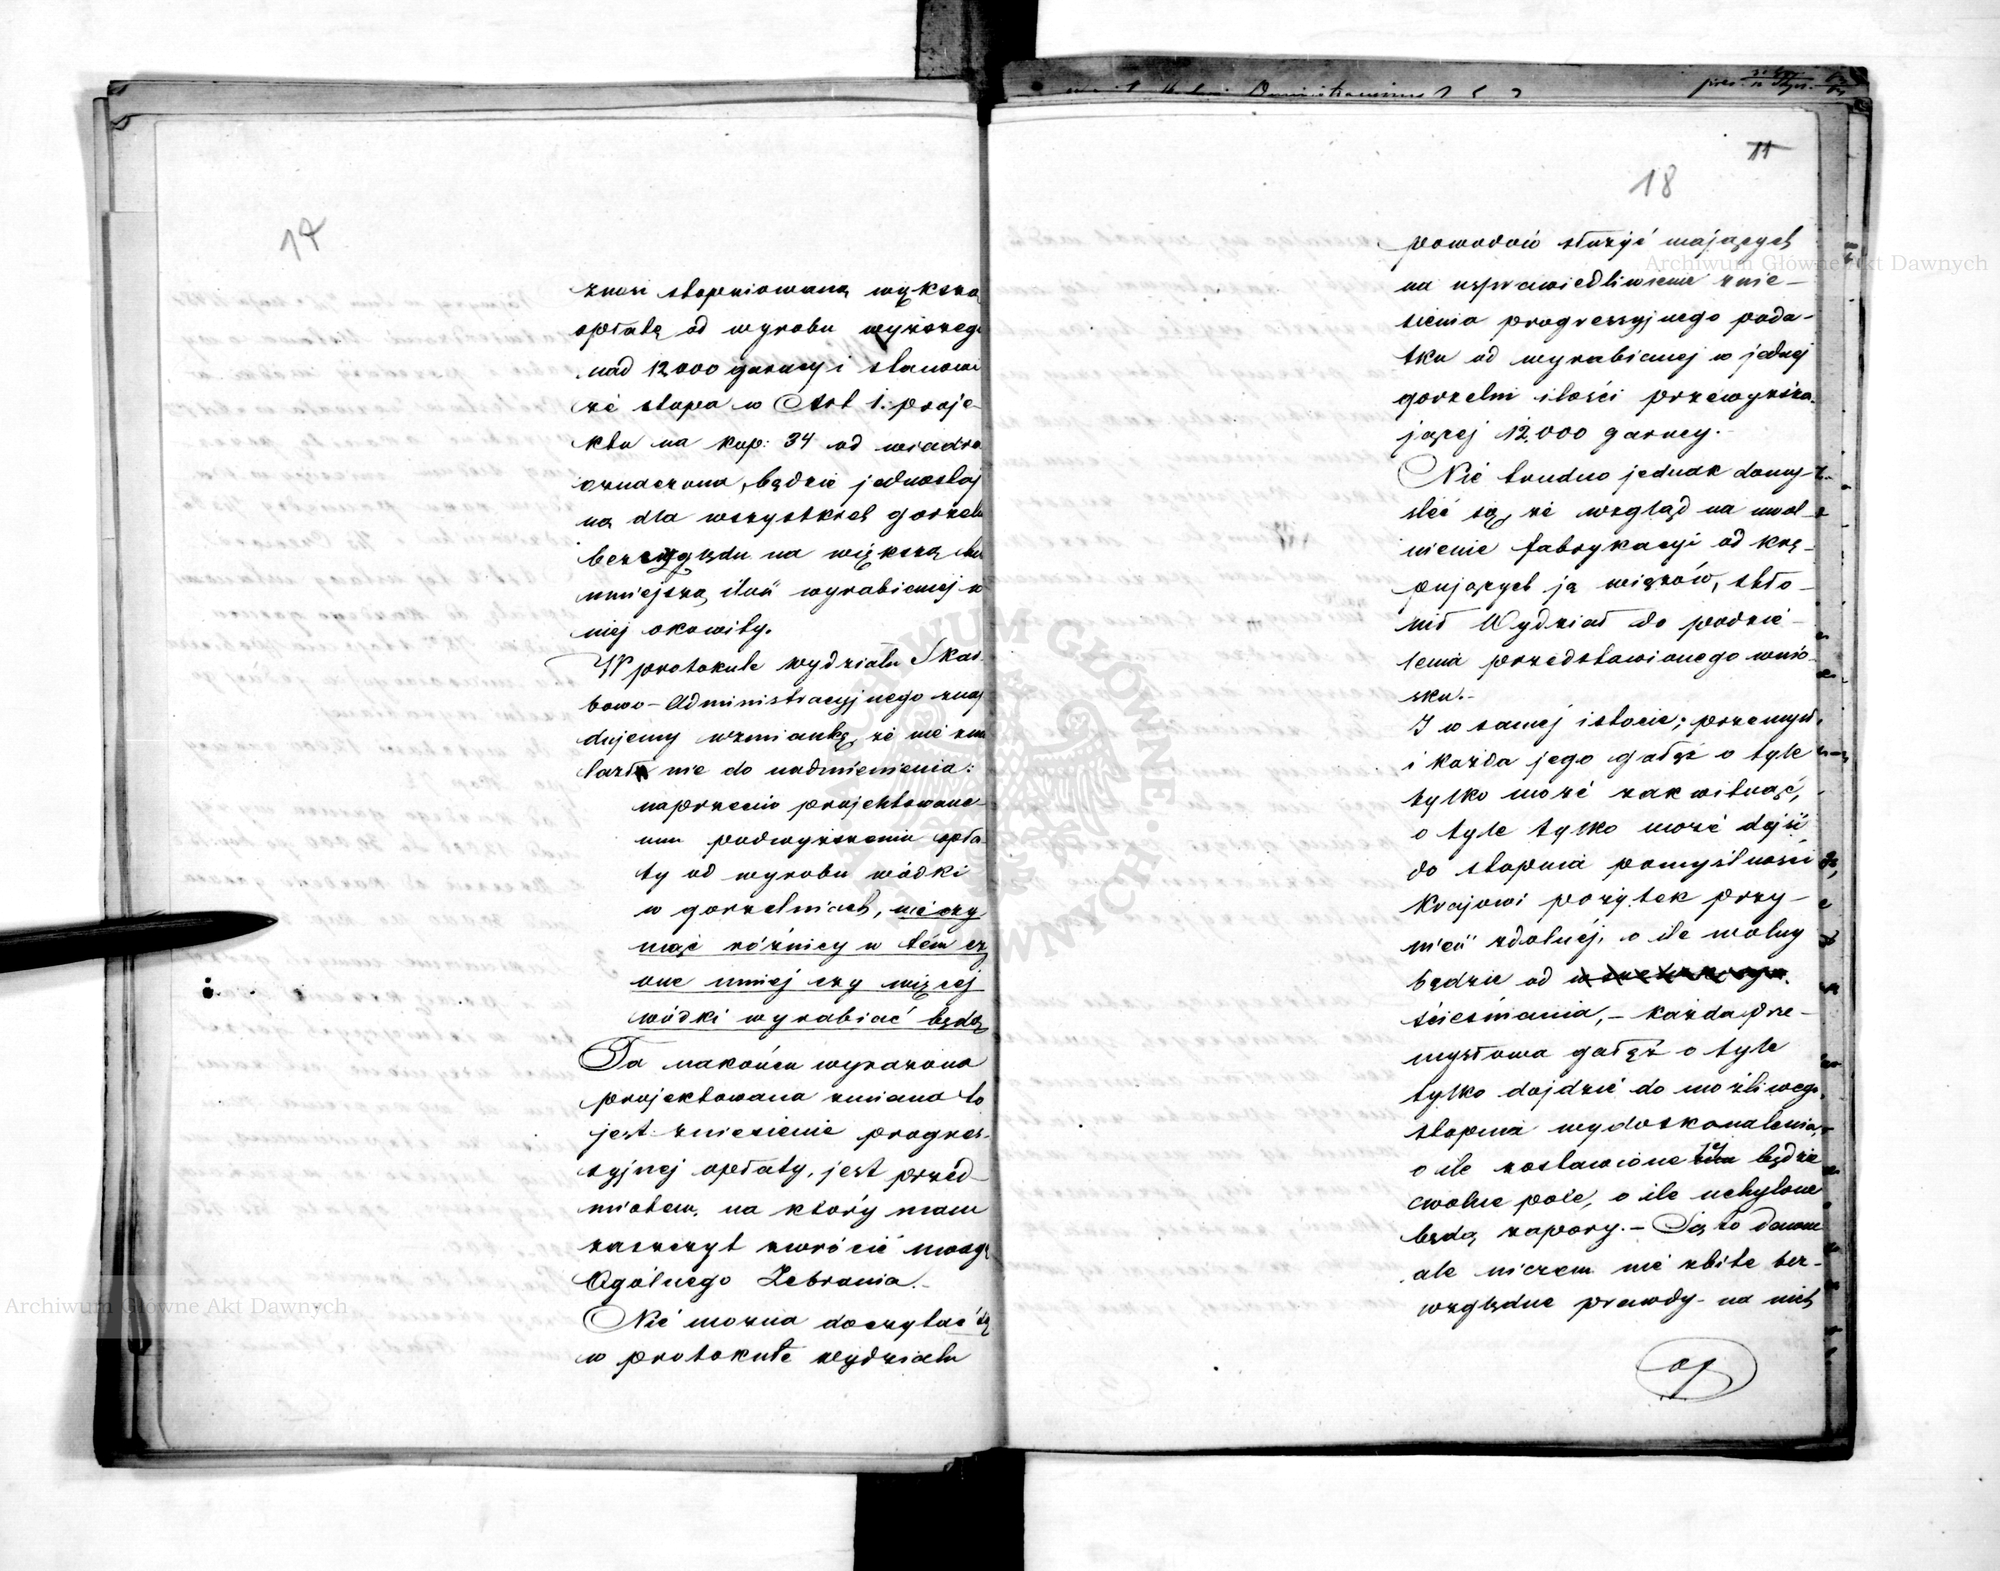 17
znosi stopniowaną większą
opłatę od wyrobu wyższego
nad 12000 garncy i stanowi
że stopa w Art 1. proje-
ktu na kop: 34 od wiadra
oznaczona, będzie jednostaj
ną dla wszystkich gorzelń
bez względu na większą lub
mniejszą ilość wyrabianej w
niej okowity.
W protokule wydziału Skar-
bowo-Administracyjnego znaj
dujemy wzmiankę, że nie zna
lazł nie do nadmienienia:
naprzeciw projektowane-
mu podwyższeniu opła-
ty od wyrobu wódki
w gorzelniach, nie czy
niąc różnicy w tém czy
one mniej czy więcej
wódki wyrabiać będą
Ta nakońcu wyrażona
projektowana zmiana to
jest zniesienie progres-
syjnej opłaty, jest przed-
miotem, na który mam
zaszczyt zwrócić uwagę
Ogólnego Zebrania.-
Nie można doczytać się
w protokule wydziału
11
18
powodów służyć mających
na usprawiedliwienie znie-
sienia progressyjnego poda-
tku od wyrabianej w jednej
gorzelni ilości przewyższa-
jącej 12,000 garncy.-
Nie trudno jednak domy-
śleć się, że wzgląd na uwol-
nienie fabrykacyi od krę-
pujących ją więzów, skło-
nił Wydział do podzie-
lenia przedstawionego wnio-
sku.-
I w samej istocie; przemysł
i każda jego gałęź o tyle
tylko może zakwitnąć,
o tyle tylko może dojść
do stopnia pomyślności
Krajowi pożytek przy-
nieść zdolnéj, o ile wolny
będzie od
ścieśniania,- każda prze-
mysłowa gałęź o tyle
tylko dojdzie do możliwego
stopnia wydoskonalenia,
o ile zostawione jej będzie
wolne pole, o ile uchylone
będą zapory.- Są to dawne
ale niczem nie zbite bez-
względne prawdy- na nich